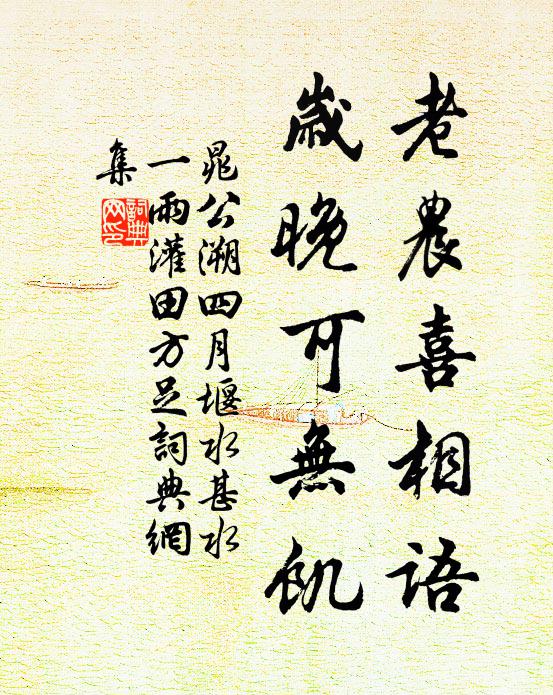 老農喜相語
歲晚可無飢
晁公溯四月堰水甚水
一雨灌田方足詞典網
集
詞典
网印